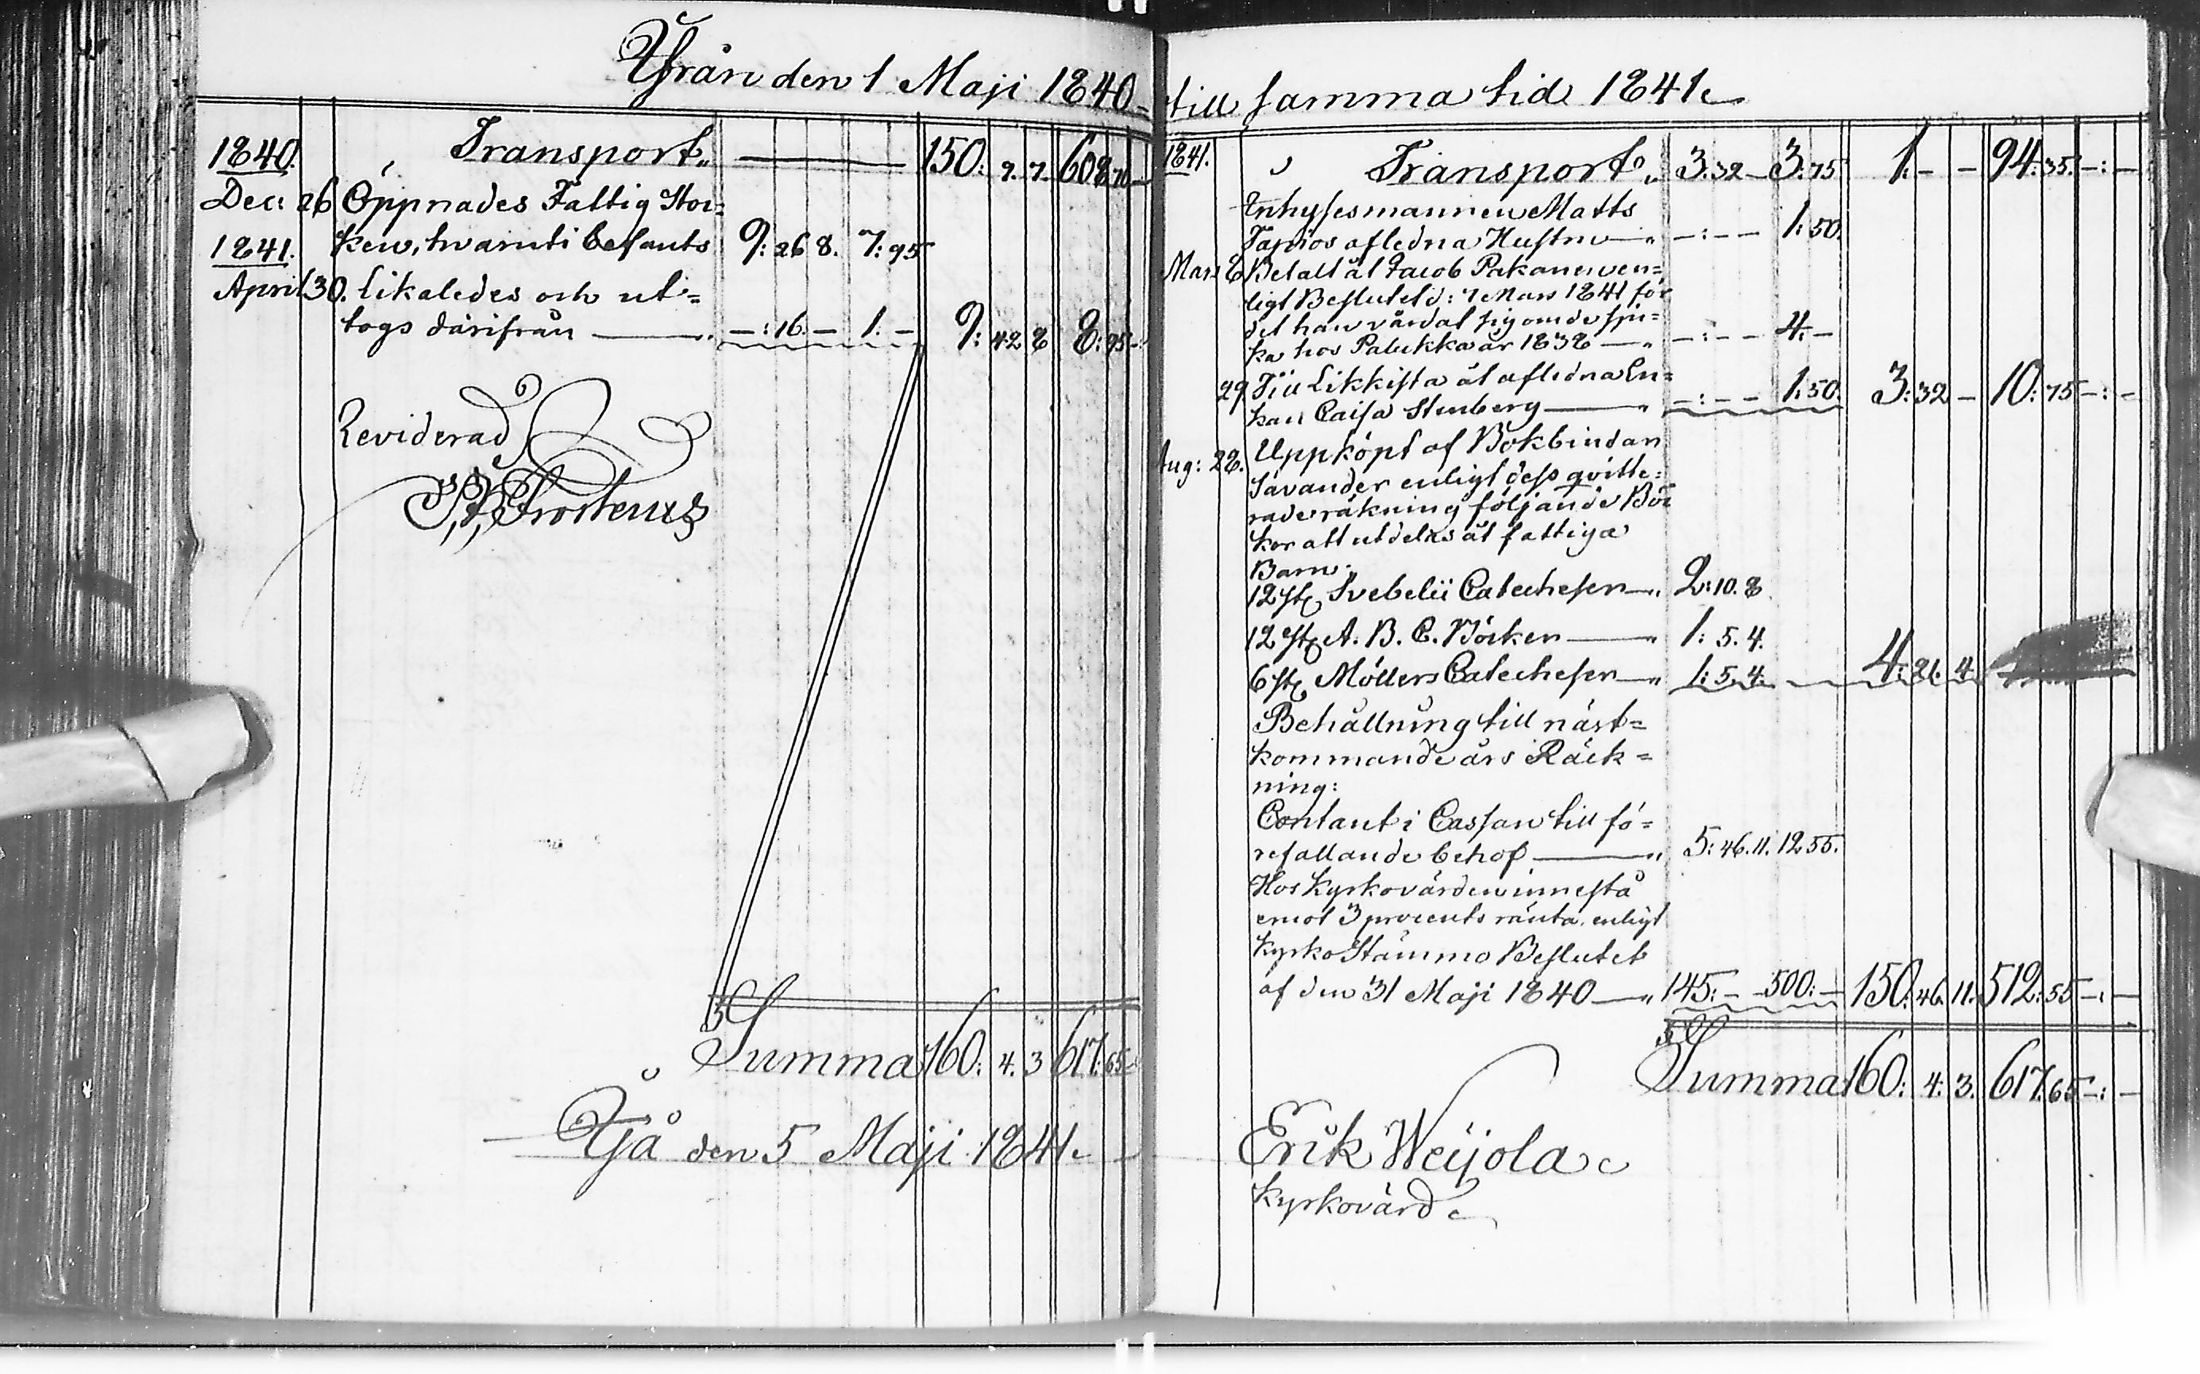 Från den 1 Maji 1840
1840. Transport „ — 150: 9. 7. 608: 70 —
Dec: 26 Öppnades Fattig Stoc=
1841. ken, hvaruti befants 9: 26 8. 7: 95
April 30. likaledes och ut=
togs därifrån — „ —: 16. — 1. — 9: 42 8 8: 95 —
Reviderad
Frosterus
Summa 160: 4. 3 617: 65
Yjå den 5 Maji 1841.
till samma tid 1841
1841. Transport „ 3: 32 — 3: 75 1: — — 94: 35. —: —
Inhysesmannen Matts
Tapios afledna Hustru — „ —: — — 1: 50.
Mars 6 Betalt åt Jacob Pakanen en=
ligt Beslutet d: 7 Mars 1841 för
det han vårdat sig om de sju=
ka hos Palukka år 1838 — „ —: — — 4: —
29 Till Likkista åt afledna En=
kan Caisa Stenberg — „ —: — — 1: 50. 3: 32 — 10: 75 —: —
Aug: 28. Uppköpt af Bokbindan
Savander enligt dess qvitte=
rade räkning följande Böc
ker att utdelas åt fattiga
Barn:
12 st Svebelii Catechesen — „ 2: 10. 8.
12 st A. B. C. Böcker — „ 1: 5. 4.
6 st Möllers Catechesen — „ 1: 5. 4. — 4: 21. 4.
Behållning till näst=
kommande års Räck=
ning:
Contant i Cassan till fö=
refallande behof — „ 5: 46. 11. 12. 55.
Hos Kyrkovärden innestå
emot 3 procents ränta enligt
Kyrko Stämmo Beslutet
af den 31 Maji 1840 — „ 145: — 500: — 150: 46. 11. 512: 55 —: —
Summa 160: 4: 3. 617: 65 —: —
Erik Weijola
Kyrkovärd